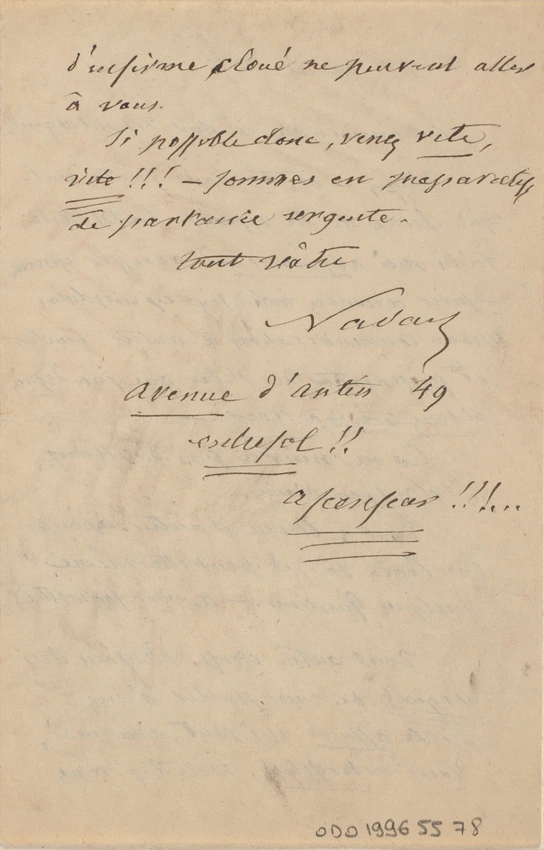 d'infirme, cloué ne peuvent aller
à vous.
Si possible donc, venez vite,
vite !!! – sommes en préparatifs
de partance urgente.
tout vôtre
Nadar
avenue d'antin 49
entresol !!
ascenseur !!!...
ODO 1996 55 78